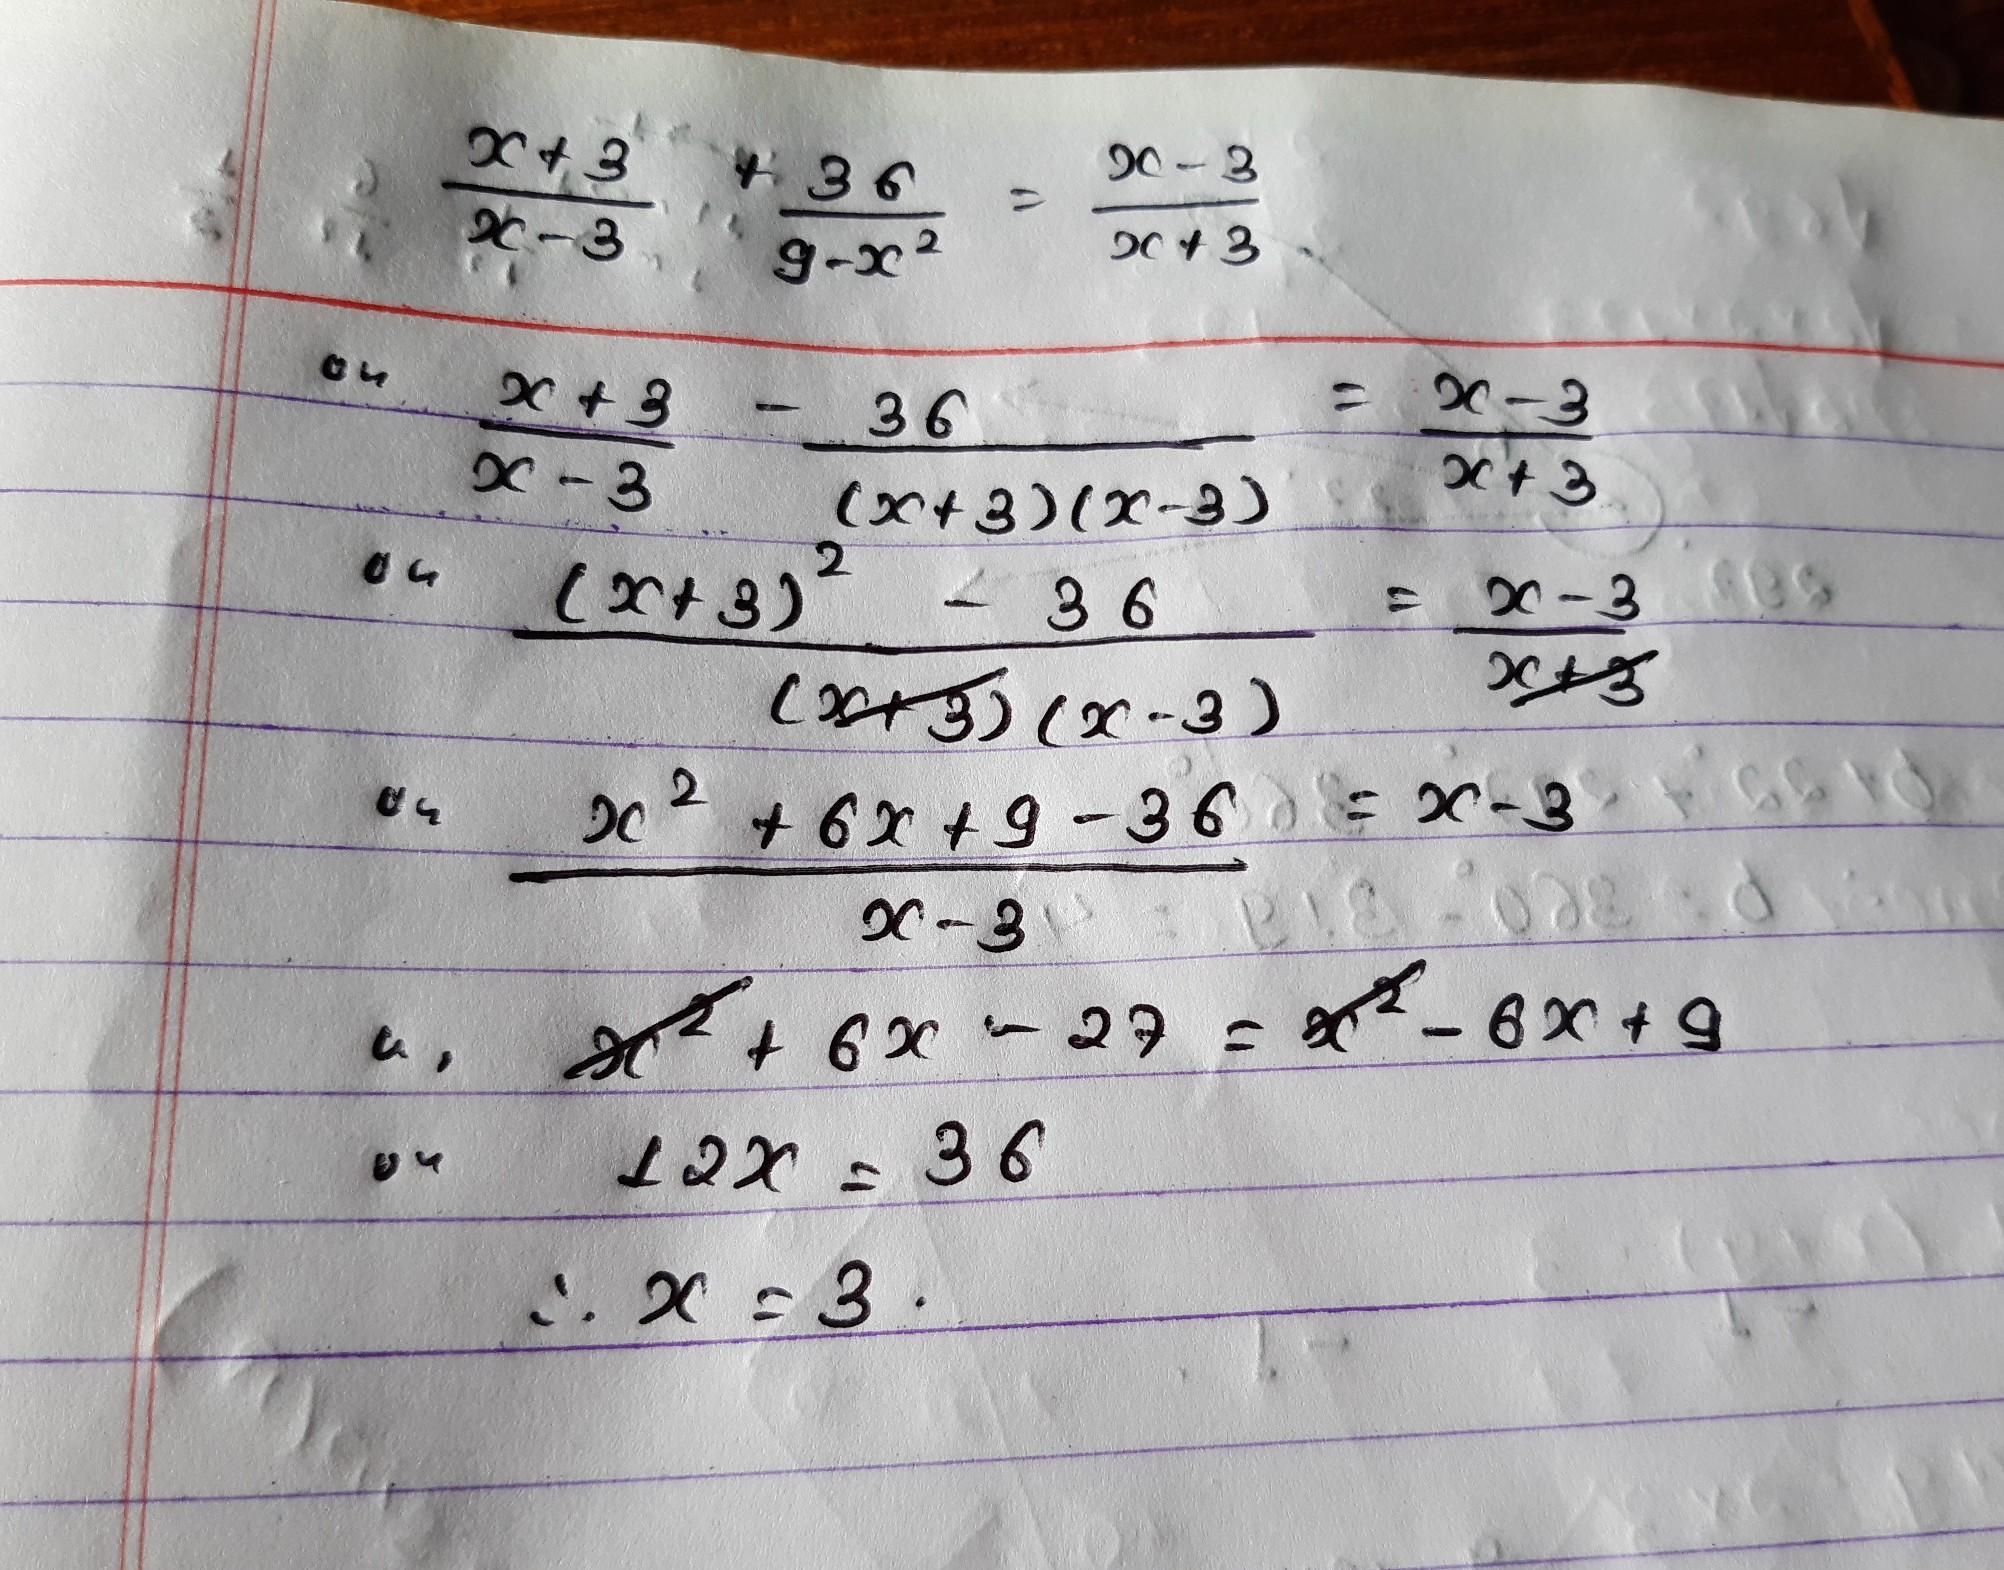 x+3/x-3 + 36/9-x² = x-3/x+3
or x+3/x-3 - 36/(x+3)(x-3) = x-3/x+3
or (x+3)² - 36/(x+3)(x-3) = x-3/x+3
or x² + 6x + 9 - 36/x-3 = x-3
r, x² + 6x - 27 = x² - 6x + 9
or 12x = 36
∴ x = 3.